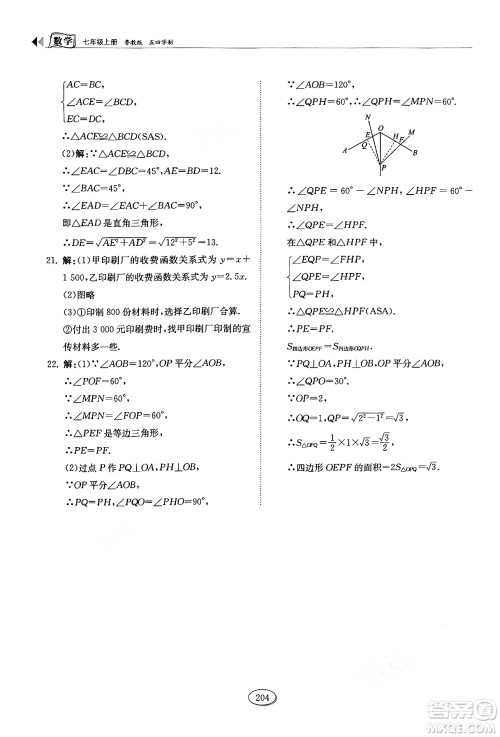 数学 七年级上册 鲁教版 五四学制
AC=BC，
∠ACE=∠BCD，
EC=DC，
∴△ACE≌△BCD(SAS).
(2)解：∵△ACE≌△BCD，
∴∠EAC=∠DBC=45°，
∵∠BAC=45°，
∴∠EAD=∠EAC+∠BAC=90°，
即△EAD 是直角三角形，
∴DE=√AE²+AD²=√12²+5²=13.
21. 解：(1)甲印刷厂的收费函数关系式为 y=x+
1 500,乙印刷厂的收费函数关系式为 y=2.5x.
(2)图略
(3)①印制 800 份材料时，选择乙印刷厂合算.
②付出 3 000 元印刷费时，找甲印刷厂印制的宣
传材料多一些.
22. 解：(1)∵∠AOB=120°，OP 平分∠AOB，
∴∠POF=60°，
∴∠MPN=60°，
∴△PEF 是等边三角形，
∴PE=PF.
(2)过点 P 作 PQ⊥OA，PH⊥OB，
∵OP 平分∠AOB，
∴PQ=PH，∠PQO=∠PHO=90°，
∵∠AOB=120°，
∴∠QPH=60°，
∴∠QPH=∠MPN，
N
O
E
H
F
M
A
Q
B
P
∴∠QPE=60°-∠EPH，∠HPF=60°-
∠EPH，
∴∠QPE=∠HPF.
在△QPE 与△HPF 中，
∠EQP=∠FHP，
∠QPE=∠HPF，
PQ=PH，
∴△QPE≌△HPF(ASA).
∴PE=PF，
S四边形OEPF=S四边形OQPH.
∵PQ⊥OA，PH⊥OB，OP 平分∠AOB，
∴∠QPO=30°，
∵OP=2，
∴OQ=1，QP=√2²-1²=√3，
∴S△OPQ=1/2×1×√3=√3/2，
∴四边形 OEPF 的面积=2S△OPQ=√3.
204